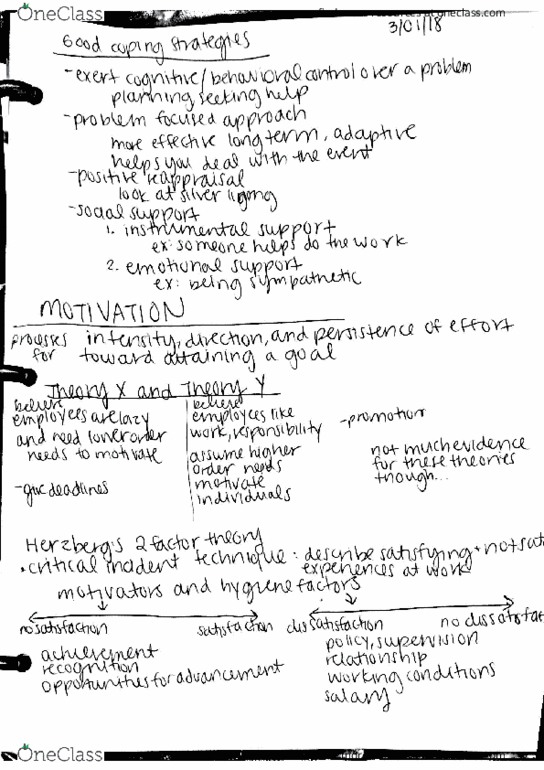 OneClass
oneclass.com
3/01/18
Good coping strategies
-exert cognitive/behavioral control over a problem
planning seeking help
-problem focused approach
more effective long term, adaptive
helps you deal with the event
-positive reappraisal
look at silver lining
-social support
1. instrumental support
ex: someone helps do the work
2. emotional support
ex: being sympathetic
MOTIVATION
processes for intensity, direction, and persistence of effort
toward attaining a goal
Theory X and Theory Y
believe
employees are lazy
and need lower order
needs to motivate
-give deadlines
believe
employees like
work, responsibility
assume higher
order needs
motivate
individuals
-promotion
not much evidence
for these theories
though...
Herzberg's 2 factor theory
•critical incident technique: describe satisfying + not sat
experiences at work
motivators and hygiene factors
no satisfaction satisfaction
achievement
recognition
opportunities for advancement
dissatisfaction no dissatisfa
policy, supervision
relationship
working conditions
salary
OneClass